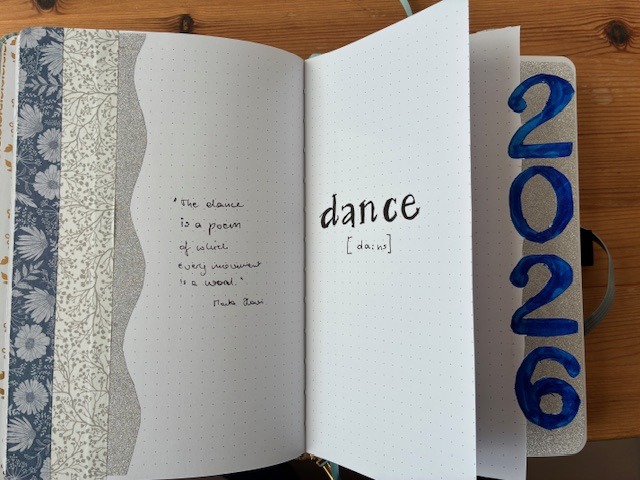 "The dance
is a poem
of which
every movement
is a word."
Mata Hari
dance
[da:ns]
2026